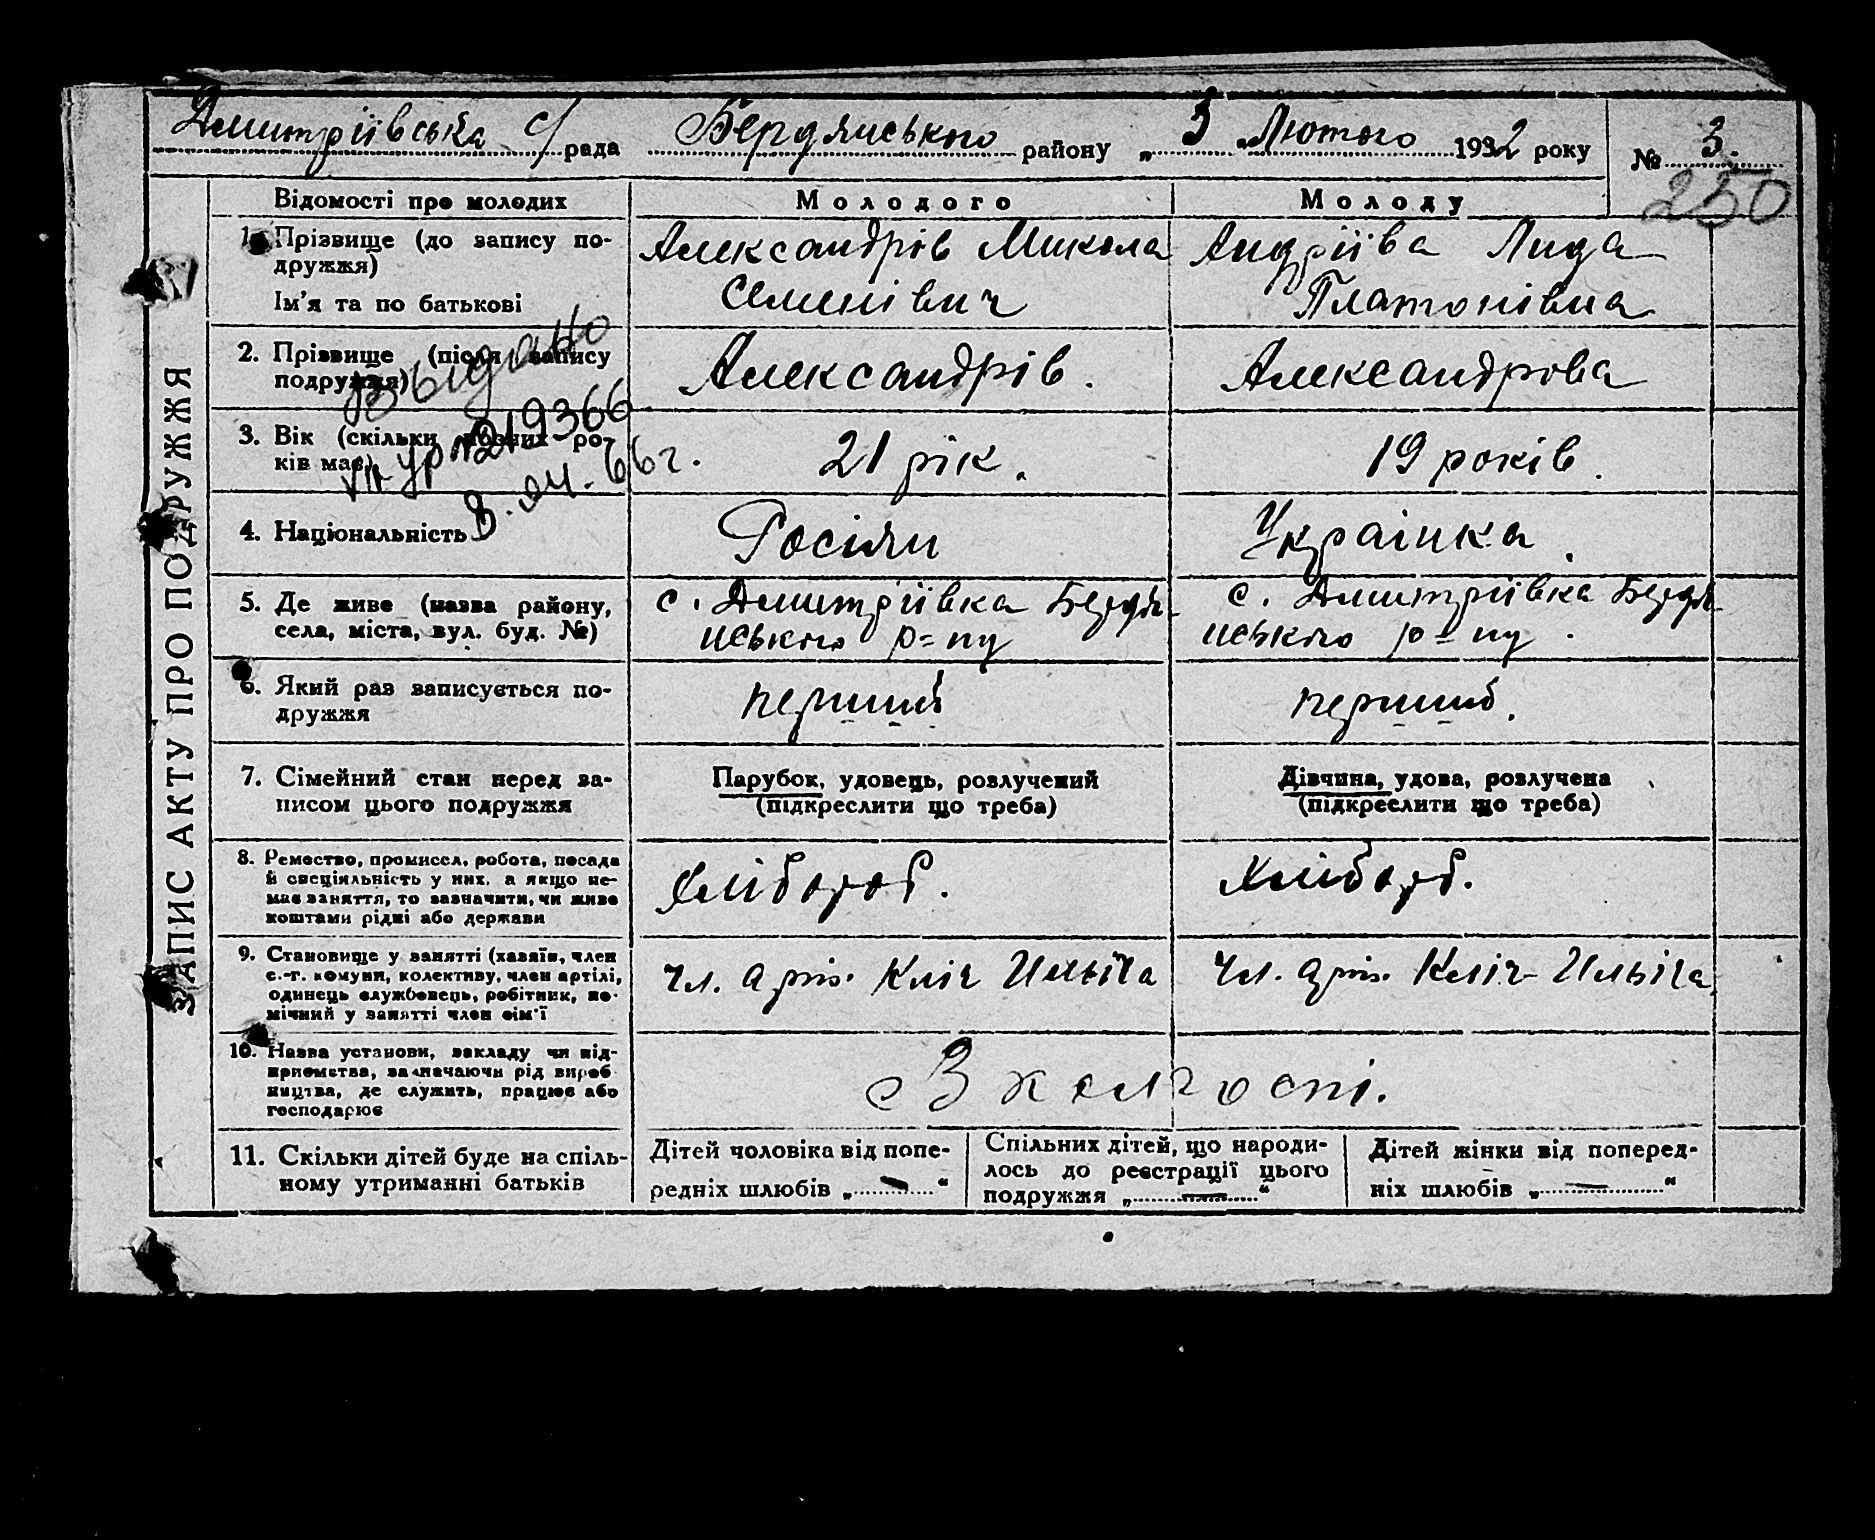 Дмитріївська с/рада Бердянського району „ 3 „ Лютого 1932 року № 3.
250
ЗАПИС АКТУ ПРО ПОДРУЖЖЯ
Відомості про молодих Молодого Молоду
1. Прізвище (до запису по-
дружжя)
Ім'я та по батькові
Александрів Микола
Семенівич
Андріїва Лида
Платонівна
2. Прізвище (після запису
подружжя)
Александрів.
Александрова
Выдано
219366
66 г.
3. Вік (скільки повних ро-
ків має)
21 рік.
19 років.
4. Національність
Росіян
Украінка.
5. Де живе (назва району,
села, міста, вул. буд. №)
с. Дмитріївка Бердя-
нського р=ну
с. Дмитріївка Бердя-
нського р=ну.
6. Який раз записується по-
дружжя
перший
перший.
7. Сімейний стан перед за-
писом цього подружжя
Парубок, удовець, розлучений
(підкреслити що треба)
Дівчина, удова, розлучена
(підкреслити що треба)
8. Ремество, промисел, робота, посада
й спеціяльність у них, а якщо не-
має заняття, то зазначити, чи живе
коштами рідні або держави
Хлібороб.
Хлібороб.
9. Становище у занятті (хазяїн, член
с.-г. комуни, колективу, член артілі,
одинець службовець, робітник, по-
мічний у занятті член сім'ї
чл. арт. Кліч Ильіча
чл. арт. Кліч Ильіча
10. Назва установи, закладу чи під-
приємства, зазначаючи рід вироб-
ництва, де служить, працює або
господарює
В колгоспі.
11. Скільки дітей буде на спіль-
ному утриманні батьків
Дітей чоловіка від попе-
редніх шлюбів „ — “
Спільних дітей, що народи-
лось до реєстрації цього
подружжя „ — “
Дітей жінки від поперед-
ніх шлюбів „ — “